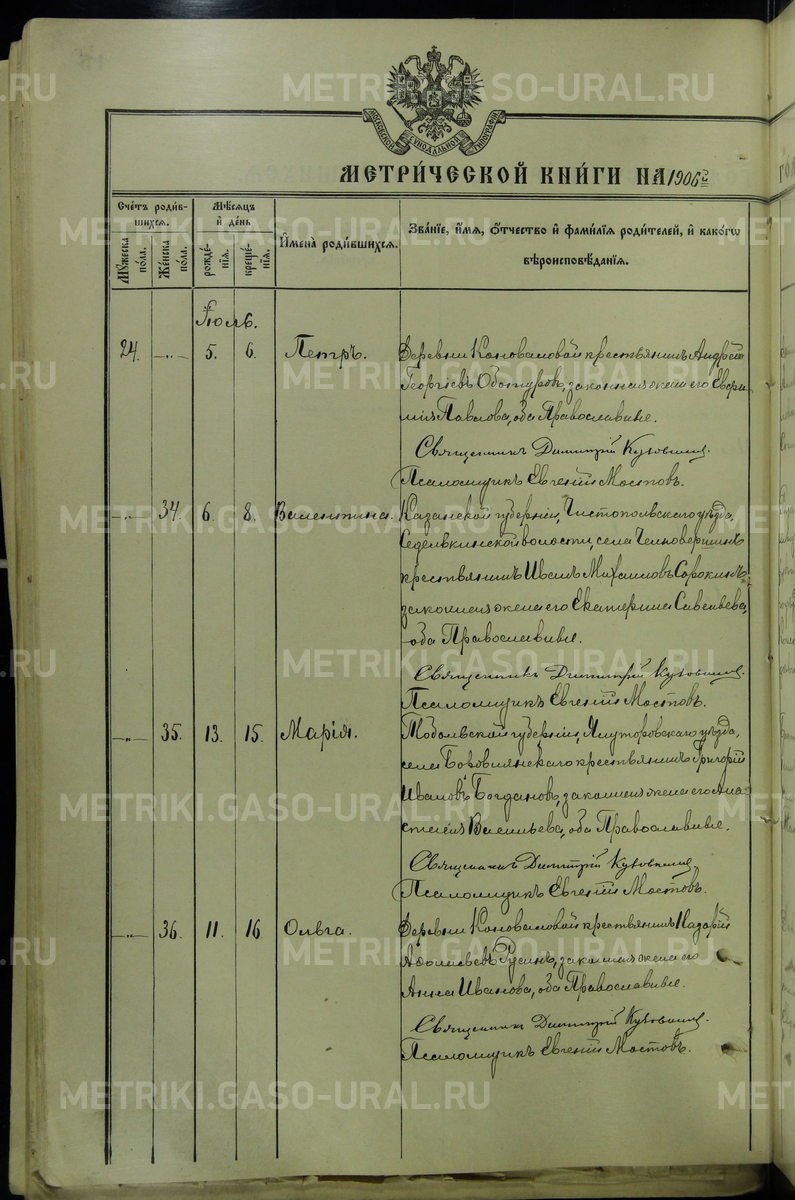 МОСКОВСКОЙ СѴНОДАЛЬНОЙ ТИПОГРАФІИ
МЕТРИ́ЧЕСКОЙ КНИ́ГИ НА 1906 г.
Сче́тъ роди́в-
шихсѧ.
Мѣ́сѧцъ
и҆ де́нь
Мꙋ́жеска
по́ла.
Же́нска
по́ла.
рожде́-
нїѧ.
креще́-
нїѧ.
И҆мена̀ роди́вшихсѧ.
Зва́нїе, и҆́мѧ, ѻ҆́тчество и҆ фами́лїѧ роди́телей, и҆ како́гѡ
вѣроисповѣ́данїѧ.
Іюль.
24. —„— 5. 6. Петръ. Деревни Коноваловой крестьянинъ Андрей
Георгіевъ, законная жена его
Павлова, оба Православные.
Священникъ Димитрій
Псаломщикъ Евгеній Мостовъ.
—„— 34. 6. 8. Валентина. Казанской губерніи, Чистопольскаго уѣзда,
волости, села
крестьянинъ Иванъ Михаиловъ Сорокинъ,
законная жена его Екатерина Савельева,
оба Православные.
Священникъ Димитрій
Псаломщикъ Евгеній Мостовъ.
—„— 35. 13. 15. Марія. Тобольской губерніи, Ялуторовскаго уѣзда,
села крестьянинъ Григорій
Ивановъ Богдановъ, законная жена его Ана-
стасія Васильева, оба Православные.
Священникъ Димитрій
Псаломщикъ Евгеній Мостовъ.
—„— 36. 11. 16. Ольга. Деревни Коноваловой крестьянинъ Назарій
законная жена его
Анна Иванова, оба Православные.
Священникъ Димитрій
Псаломщикъ Евгеній Мостовъ.
METRIKI.GASO-URAL.RU